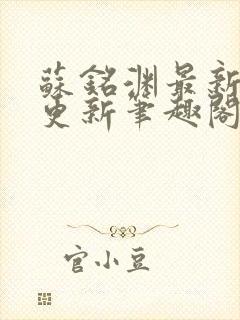 蘇銘淵最新
更新筆趣閣
官小豆